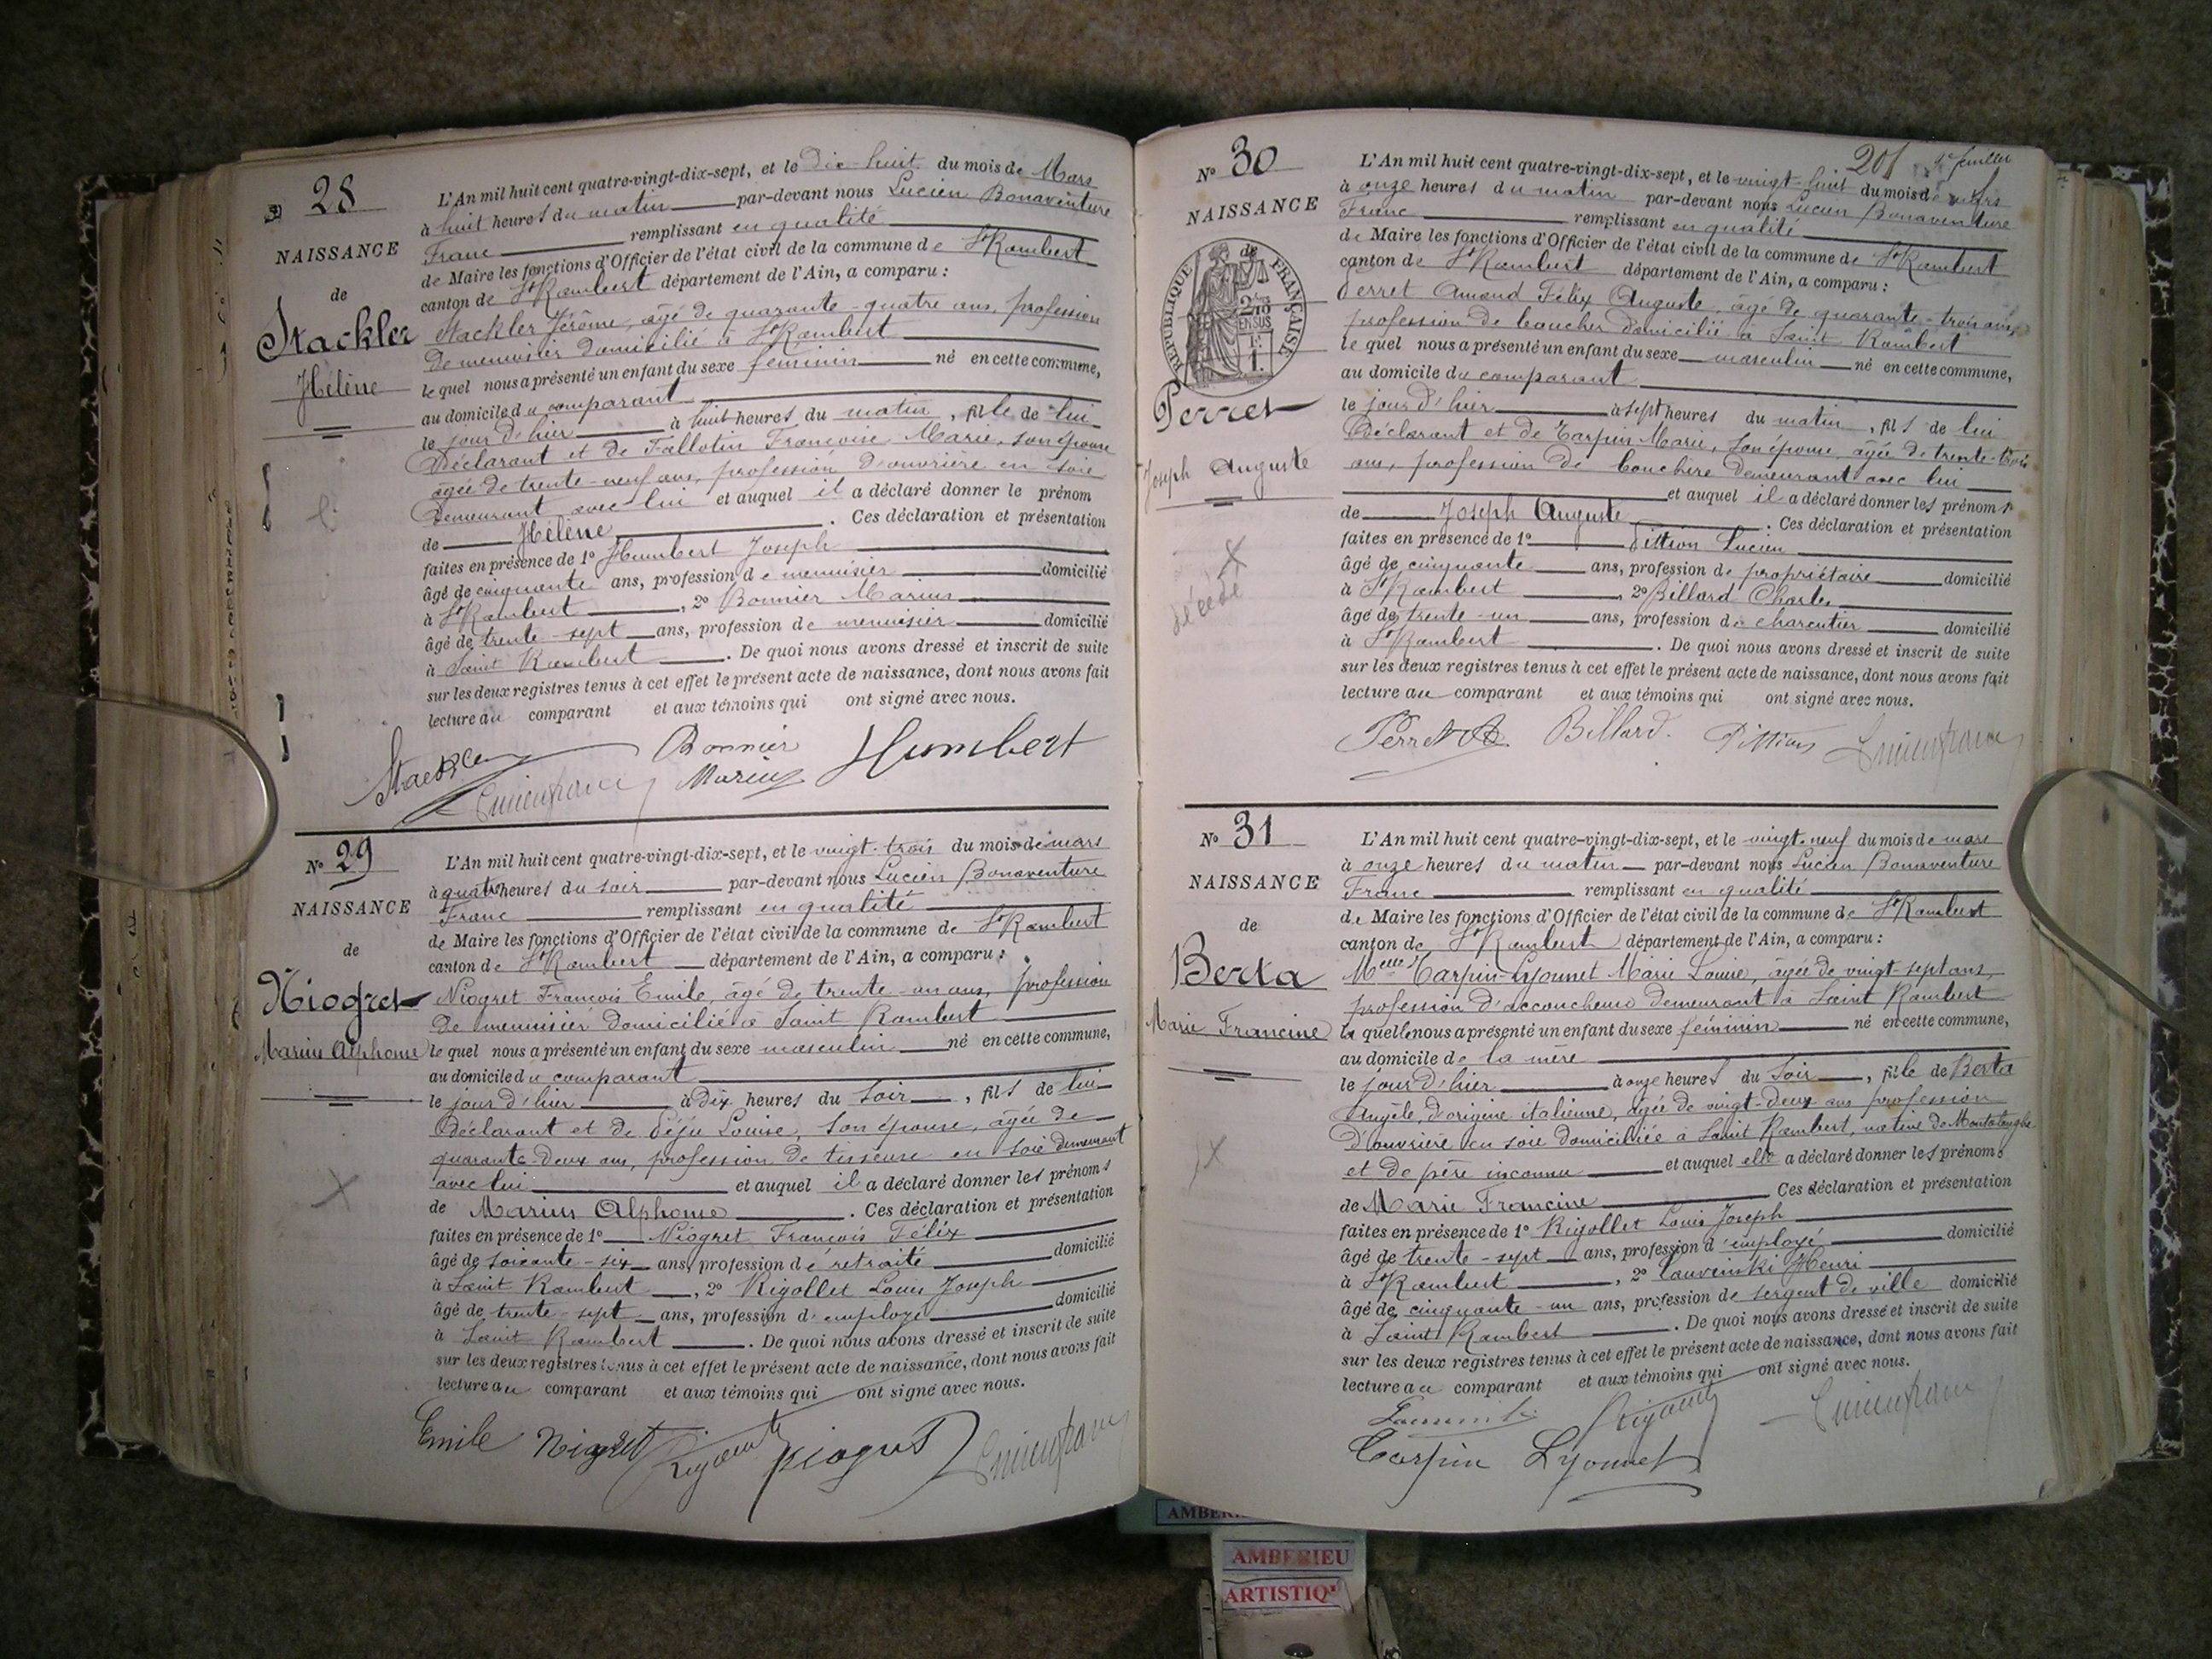 28
NAISSANCE
de
Stackler
Hélène
L'An mil huit cent quatre-vingt-dix-sept, et le dix-huit du mois de Mars
à huit heures du matin par-devant nous Lucien Bonaventure
Franc remplissant en qualité
de Maire les fonctions d'Officier de l'état civil de la commune de St Rambert
canton de St Rambert département de l'Ain, a comparu :
Stackler Jérôme, âgé de quarante-quatre ans, profession
de menuisier domicilié à St Rambert
le quel nous a présenté un enfant du sexe féminin né en cette commune,
au domicile du comparant
le jour d'hier à huit heures du matin, fille de lui
déclarant et de Fallotin Françoise Marie, son épouse
âgée de trente-neuf ans, profession d'ouvrière en soie
demeurant avec lui et auquel il a déclaré donner le prénom
de Hélène. Ces déclaration et présentation
faites en présence de 1° Humbert Joseph
âgé de cinquante ans, profession de menuisier domicilié
à St Rambert, 2° Bonnier Marius
âgé de trente-sept ans, profession de menuisier domicilié
à Saint Rambert. De quoi nous avons dressé et inscrit de suite
sur les deux registres tenus à cet effet le présent acte de naissance, dont nous avons fait
lecture au comparant et aux témoins qui ont signé avec nous.
Stackler Bonnier Marius Humbert
Lucien franc
N° 29
NAISSANCE
de
Niogret
Marius Alphonse
L'An mil huit cent quatre-vingt-dix-sept, et le vingt-trois du mois de mars
à quatre heures du soir par-devant nous Lucien Bonaventure
Franc remplissant en qualité
de Maire les fonctions d'Officier de l'état civil de la commune de St Rambert
canton de St Rambert département de l'Ain, a comparu :
Niogret François Emile, âgé de trente-un ans, profession
de menuisier domicilié à Saint Rambert
le quel nous a présenté un enfant du sexe masculin né en cette commune,
au domicile du comparant
le jour d'hier à dix heures du soir, fils de lui
déclarant et de Déju Louise, son épouse, âgée de
quarante-deux ans, profession de tisseuse en soie demeurant
avec lui et auquel il a déclaré donner les prénoms
de Marius Alphonse. Ces déclaration et présentation
faites en présence de 1° Niogret François Félix
âgé de soixante-six ans, profession de retraité domicilié
à Saint Rambert, 2° Rigollet Louis Joseph
âgé de trente-sept ans, profession d'employé domicilié
à Saint Rambert. De quoi nous avons dressé et inscrit de suite
sur les deux registres tenus à cet effet le présent acte de naissance, dont nous avons fait
lecture au comparant et aux témoins qui ont signé avec nous.
Emile Niogret Niogret Lucien franc
201
N° 30
NAISSANCE
de
RÉPUBLIQUE FRANÇAISE
Perret
Joseph Auguste
décédé
L'An mil huit cent quatre-vingt-dix-sept, et le vingt-huit du mois de mars
à onze heures du matin par-devant nous Lucien Bonaventure
Franc remplissant en qualité
de Maire les fonctions d'Officier de l'état civil de la commune de St Rambert
canton de St Rambert département de l'Ain, a comparu :
Perret Amand Félix Auguste, âgé de quarante-trois ans,
profession de boucher domicilié à Saint Rambert
le quel nous a présenté un enfant du sexe masculin né en cette commune,
au domicile du comparant
le jour d'hier à sept heures du matin, fils de lui
déclarant et de Tarpin Marie, son épouse, âgée de trente-trois
ans, profession de bouchère demeurant avec lui
et auquel il a déclaré donner les prénoms
de Joseph Auguste. Ces déclaration et présentation
faites en présence de 1° Pittion Lucien
âgé de cinquante ans, profession de propriétaire domicilié
à St Rambert 2° Billard Charles
âgé de trente-un ans, profession de charcutier domicilié
à St Rambert. De quoi nous avons dressé et inscrit de suite
sur les deux registres tenus à cet effet le présent acte de naissance, dont nous avons fait
lecture au comparant et aux témoins qui ont signé avec nous.
Perret Billard. Pittion Lucien franc
N° 31
NAISSANCE
de
Berta
Marie Francine
L'An mil huit cent quatre-vingt-dix-sept, et le vingt-neuf du mois de mars
à onze heures du matin par-devant nous Lucien Bonaventure
Franc remplissant en qualité
de Maire les fonctions d'Officier de l'état civil de la commune de St Rambert
canton de St Rambert département de l'Ain, a comparu :
Tarpin-Lyonnet Marie Louise, âgée de vingt-sept ans,
profession d'accoucheuse demeurant à Saint Rambert
la quelle nous a présenté un enfant du sexe féminin né en cette commune,
au domicile de la mère
le jour d'hier à onze heures du soir, fille de Berta
Angèle, d'origine italienne, âgée de vingt-deux ans profession
d'ouvrière en soie domiciliée à Saint Rambert, native de
et de père inconnu et auquel elle a déclaré donner les prénoms
de Marie Francine Ces déclaration et présentation
faites en présence de 1° Rigollet Louis Joseph
âgé de trente-sept ans, profession d'employé domicilié
à St Rambert, 2° Henri
âgé de cinquante-un ans, profession de sergent de ville domicilié
à Saint Rambert. De quoi nous avons dressé et inscrit de suite
sur les deux registres tenus à cet effet le présent acte de naissance, dont nous avons fait
lecture au comparant et aux témoins qui ont signé avec nous.
Lucien franc
Tarpin Lyonnet
AMBERIEU
ARTISTIQ